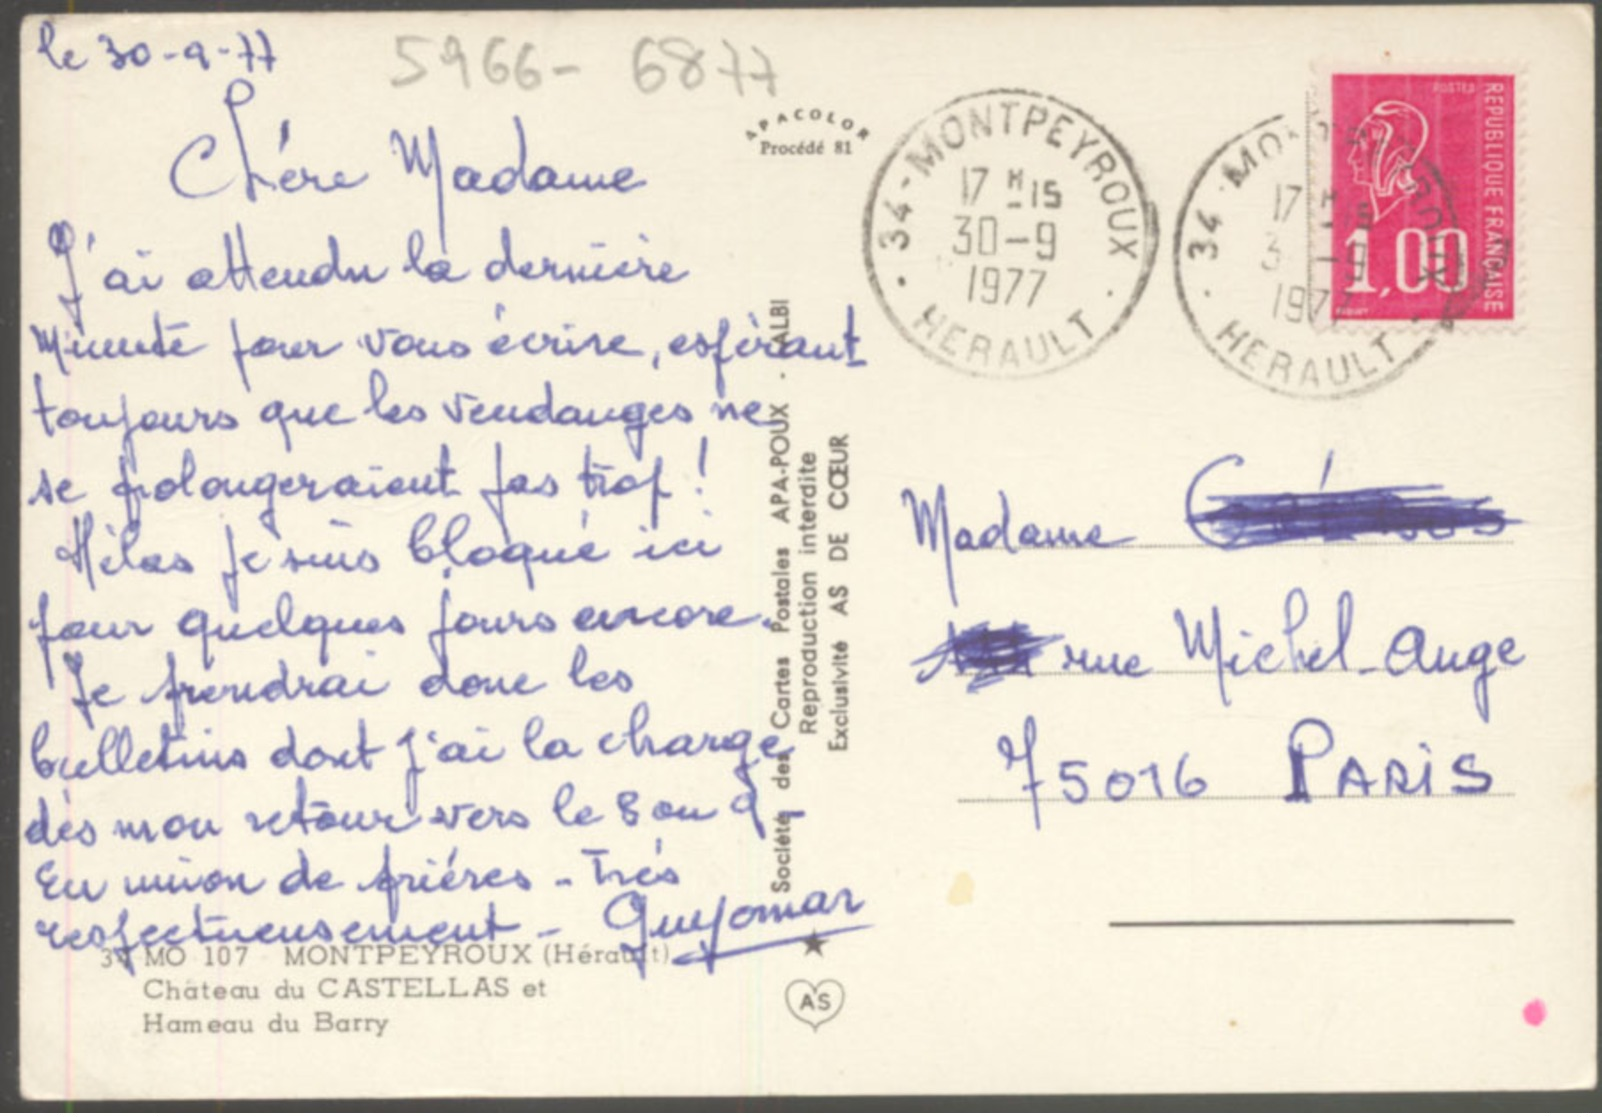 le 30-9-77
5966- 6877
Chére Madame
J'ai attendu la dernière
Minute pour vous écrire, espérant
toujours que les vendanges ne
se prolongeraient pas trop!
Hélas je suis bloqué ici
pour quelques jours encore.
Je prendrai donc les
bulletins dont j'ai la charge
dès mon retour vers le 8 ou 9-
En union de priéres - Trés
respectueusement - Guyomar
34 MO 107 MONTPEYROUX (Hérault)
Château du CASTELLAS et
Hameau du Barry
APACOLOR
Procédé 81
Société des Cartes Postales APA-POUX - ALBI
Reproduction interdite
Exclusivité AS DE CŒUR
AS
34-MONTPEYROUX
17 H -15
30-9
1977
HERAULT
34 MONTPEYROUX
17 H -15
30-9
1977
HERAULT
POSTES
REPUBLIQUE FRANÇAISE
1,00
Madame
rue Michel-Ange
75016 PARIS